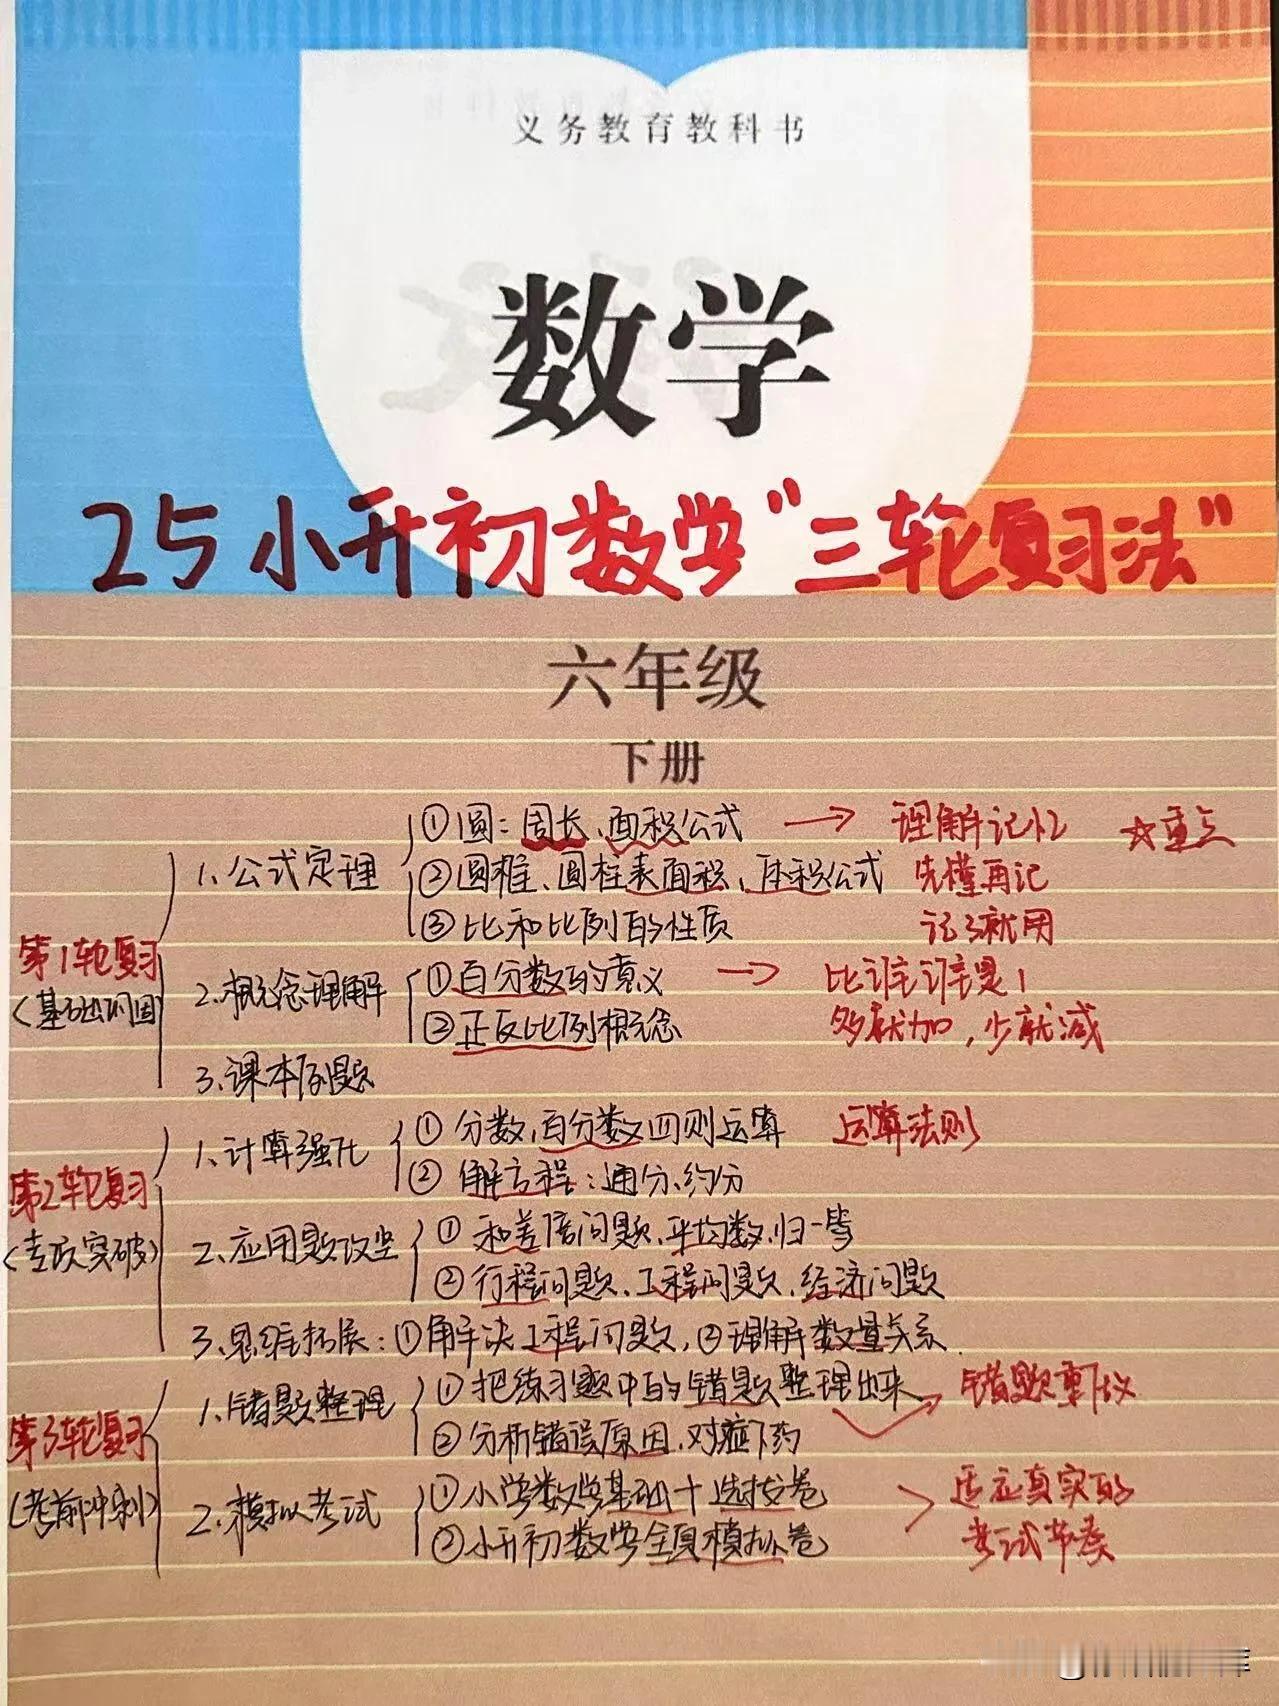 义务教育教科书
数学
25小升初数学"三轮复习法"
六年级
下册
第1轮复习
(基础巩固)
1、公式定理
①圆：周长、面积公式 → 理解记忆 ☆重点
②圆椎、圆柱表面积、体积公式 先懂再记
③比和比例的性质 记了就用
2、概念理解
①百分数的意义 → 比谁谁是1
②正反比例概念 多就加，少就减
3、课本例题
第2轮复习
(专项突破)
1、计算强化
①分数,百分数四则运算 运算法则
②解方程：通分、约分
2、应用题攻坚
①和差倍问题、平均数、归一等
②行程问题、工程问题、经济问题
3、思维拓展：①解决工程问题，②理解数量关系
第3轮复习
(考前冲刺)
1、错题整理
①把练习题中的错题整理出来 错题重做
②分析错误原因、对症下药
2、模拟考试
①小学数学基础+选拔卷 适应真实的
②小升初数学全真模拟卷 考试节奏